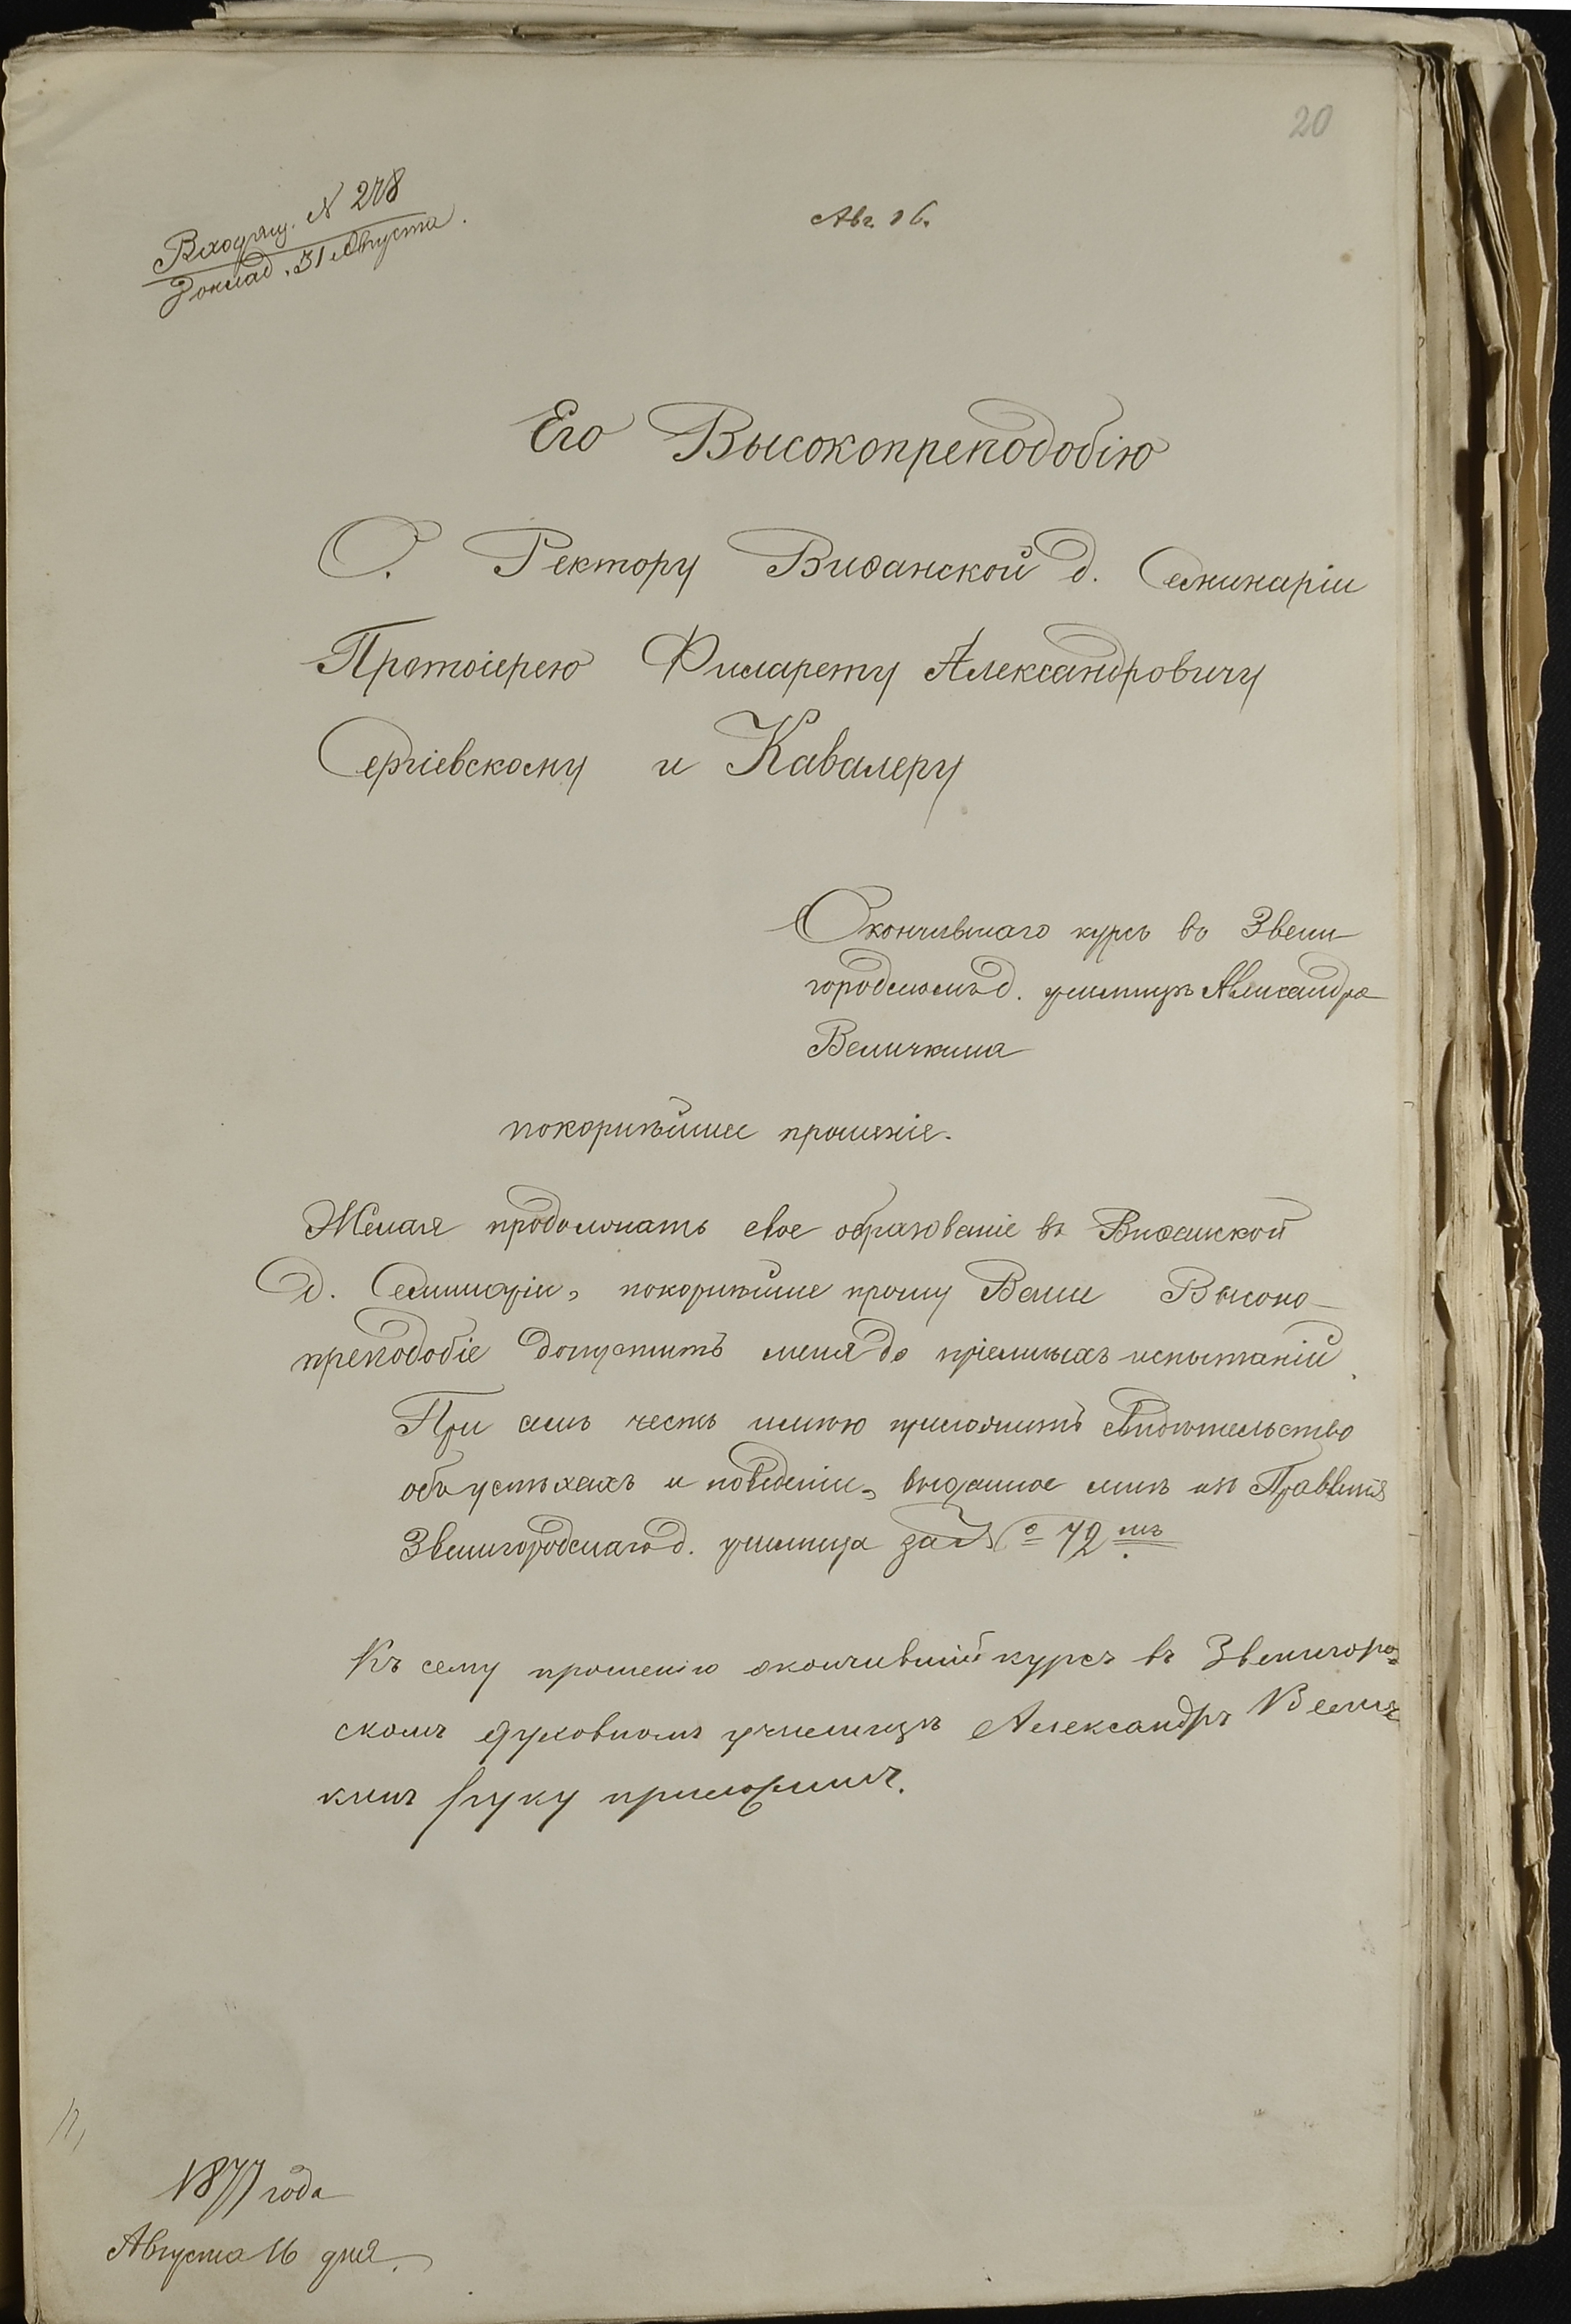 20
Входящ. N 278
Доклад. 31 Августа.
Авг. 16.
Его Высокопреподобію
О. Ректору Виѳанской д. Семинаріи
Протоіерею Филарету Александровичу
Сергіевскому и Кавалеру
Окончившаго курсъ во Звени-
городскомъ д. училищѣ Александра
Величкина
покорнѣйшее прошеніе.
Желая продолжать свое образованіе въ Виѳанской
д. Семинаріи, покорнѣйше прошу Ваше Высоко-
преподобіе допустить меня до пріемныхъ испытаній.
При семъ честь имѣю приложить свидѣтельство
объ успѣхахъ и поведеніи, выданное мнѣ изъ Правленія
Звенигородскаго д. училища за № 72мъ
Къ сему прошенію окончившій курсъ въ Звенигоро-
скомъ духовномъ училищѣ Александръ Велич
кинъ руку приложилъ.
1877 года
Августа 16 дня.